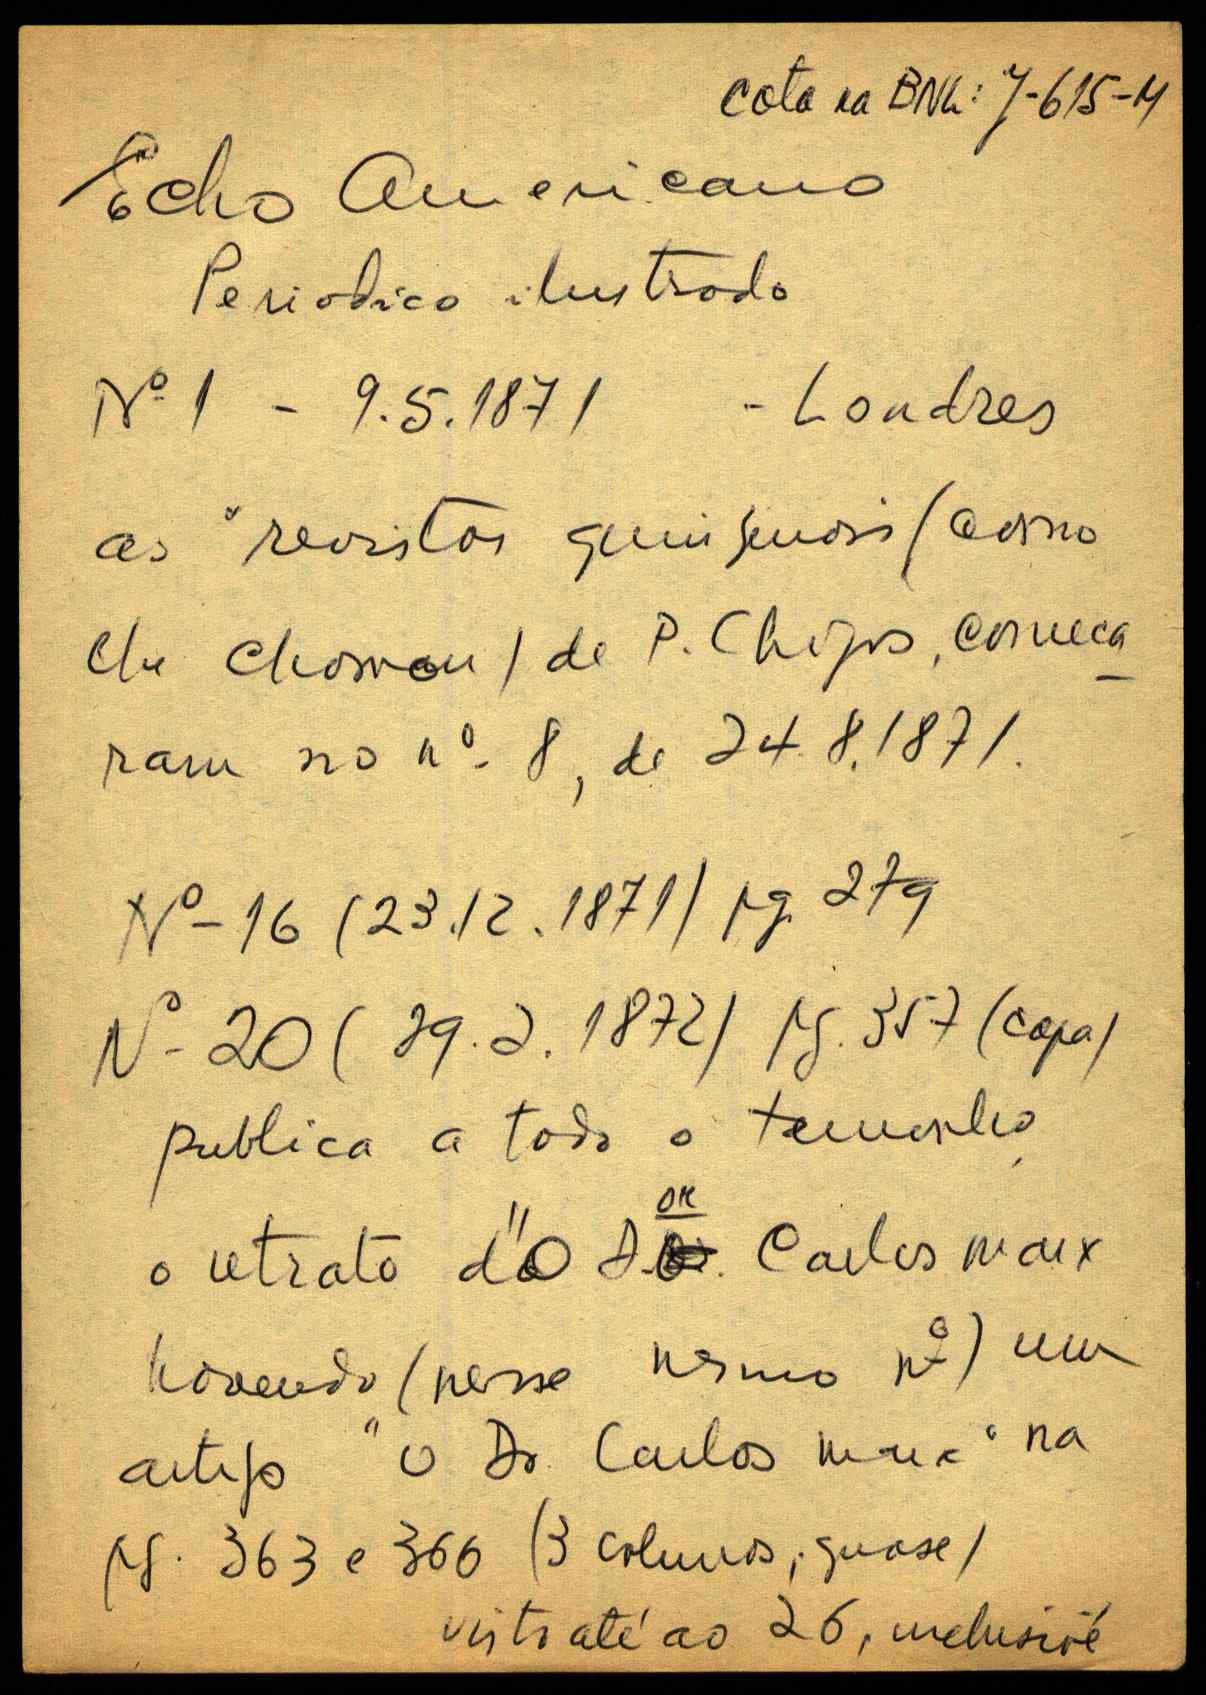 cota na BNL: J-615-M
Echo Americano
Periodico ilustrado
Nº 1 - 9.5.1871 - Londres
as "revistas quinzenais (como
lhe chamou) de P. Chagas, começa
ram no nº 8, de 24.8.1871.
Nº 16 (23.12.1871) pg. 279
Nº 20 (29.2.1872) pg. 357 (capa)
publica a todo o tamanho,
o retrato d"O DR. Carlos Marx
havendo (nesse mesmo nº) um
artigo "O Dr. Carlos Marx" na
pg. 363 e 366 (3 colunas, quase)
visto até ao 26, inclusivé